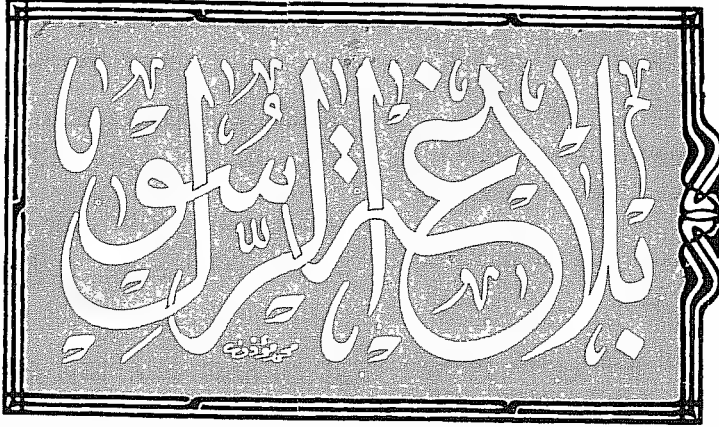 بلاغة الرَّسُول